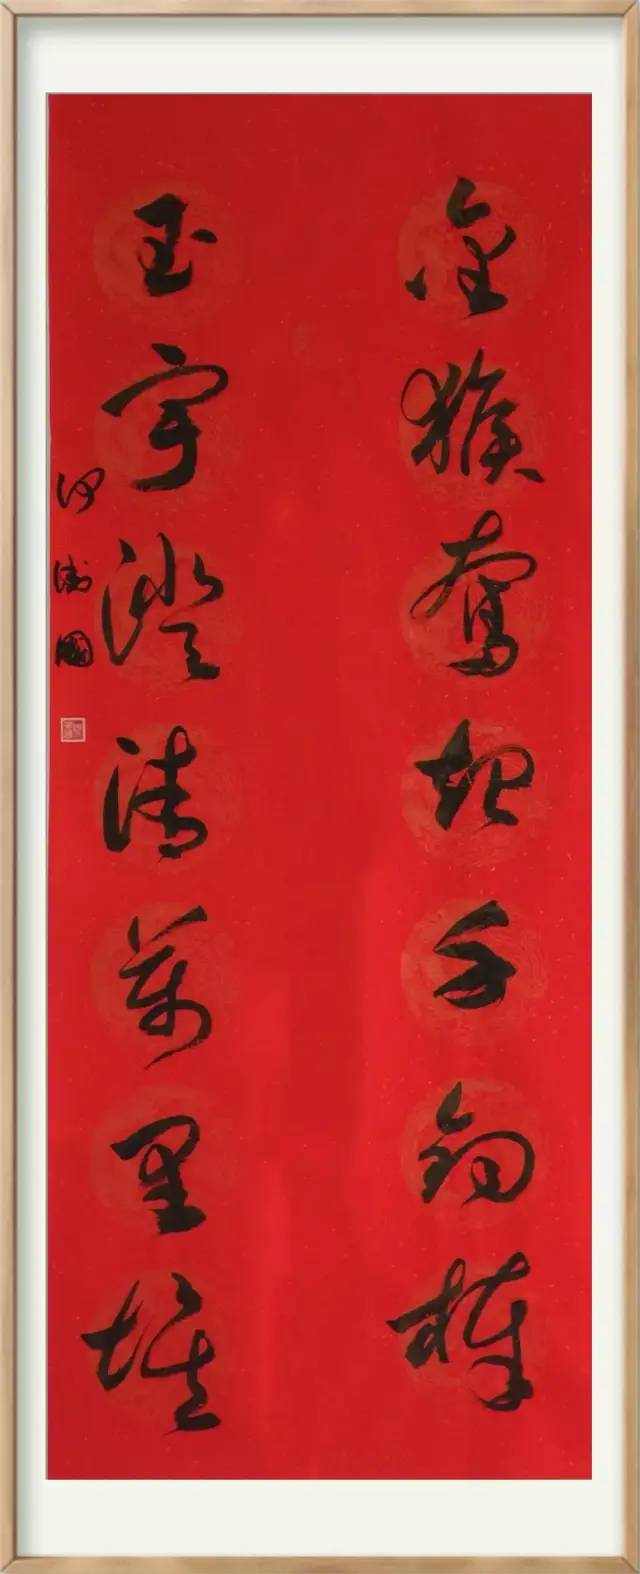 金猴奮起千鈞棒
玉宇澄清萬里埃
國